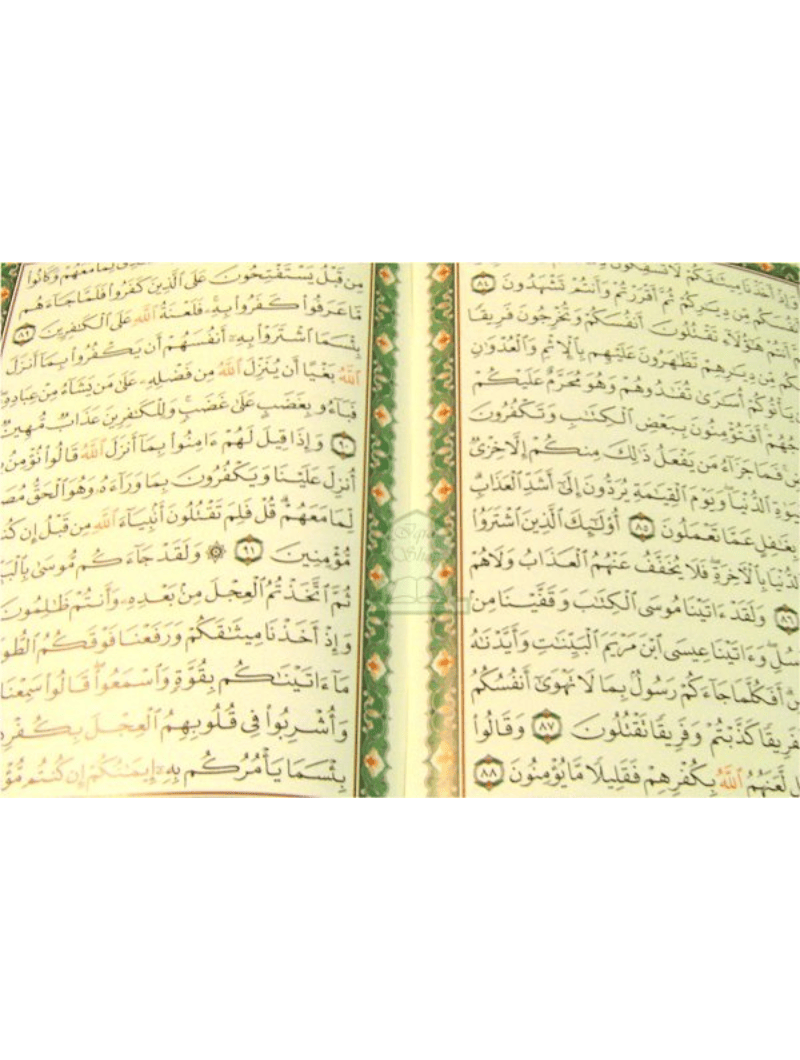 وَإِذْ أَخَذْنَا مِيثَٰقَكُمْ لَا تَسْفِكُونَ
أَنفُسَكُم مِّن دِيَٰرِكُمْ ثُمَّ أَقْرَرْتُمْ وَأَنتُمْ تَشْهَدُونَ ٨٤
أَنتُمْ هَٰٓؤُلَآءِ تَقْتُلُونَ أَنفُسَكُمْ وَتُخْرِجُونَ فَرِيقًا
مِّن دِيَٰرِهِمْ تَظَٰهَرُونَ عَلَيْهِم بِٱلْإِثْمِ وَٱلْعُدْوَٰنِ
يَأْتُوكُمْ أُسَٰرَىٰ تُفَٰدُوهُمْ وَهُوَ مُحَرَّمٌ عَلَيْكُمْ
أَفَتُؤْمِنُونَ بِبَعْضِ ٱلْكِتَٰبِ وَتَكْفُرُونَ
فَمَا جَزَآءُ مَن يَفْعَلُ ذَٰلِكَ مِنكُمْ إِلَّا خِزْىٌ
ٱلدُّنْيَا ۖ وَيَوْمَ ٱلْقِيَٰمَةِ يُرَدُّونَ إِلَىٰٓ أَشَدِّ ٱلْعَذَابِ ۗ
بِغَٰفِلٍ عَمَّا تَعْمَلُونَ ٨٥ أُو۟لَٰٓئِكَ ٱلَّذِينَ ٱشْتَرَوُا۟
ٱلدُّنْيَا بِٱلْءَاخِرَةِ ۖ فَلَا يُخَفَّفُ عَنْهُمُ ٱلْعَذَابُ وَلَا هُمْ
٨٦ وَلَقَدْ ءَاتَيْنَا مُوسَى ٱلْكِتَٰبَ وَقَفَّيْنَا مِنۢ
وَءَاتَيْنَا عِيسَى ٱبْنَ مَرْيَمَ ٱلْبَيِّنَٰتِ وَأَيَّدْنَٰهُ
أَفَكُلَّمَا جَآءَكُمْ رَسُولٌۢ بِمَا لَا تَهْوَىٰٓ أَنفُسُكُمُ
فَفَرِيقًا كَذَّبْتُمْ وَفَرِيقًا تَقْتُلُونَ ٨٧ وَقَالُوا۟
لَّعَنَهُمُ ٱللَّهُ بِكُفْرِهِمْ فَقَلِيلًا مَّا يُؤْمِنُونَ ٨٨
لِّمَا مَعَهُمْ وَكَانُوا۟
مِن قَبْلُ يَسْتَفْتِحُونَ عَلَى ٱلَّذِينَ كَفَرُوا۟ فَلَمَّا جَآءَهُم
مَّا عَرَفُوا۟ كَفَرُوا۟ بِهِۦ ۚ فَلَعْنَةُ ٱللَّهِ عَلَى ٱلْكَٰفِرِينَ ٨٩
بِئْسَمَا ٱشْتَرَوْا۟ بِهِۦٓ أَنفُسَهُمْ أَن يَكْفُرُوا۟ بِمَآ أَنزَلَ
ٱللَّهُ بَغْيًا أَن يُنَزِّلَ ٱللَّهُ مِن فَضْلِهِۦ عَلَىٰ مَن يَشَآءُ مِنْ عِبَادِهِۦ
فَبَآءُو بِغَضَبٍ عَلَىٰ غَضَبٍ ۚ وَلِلْكَٰفِرِينَ عَذَابٌ مُّهِينٌ
٩٠ وَإِذَا قِيلَ لَهُمْ ءَامِنُوا۟ بِمَآ أَنزَلَ ٱللَّهُ قَالُوا۟ نُؤْمِنُ
أُنزِلَ عَلَيْنَا وَيَكْفُرُونَ بِمَا وَرَآءَهُۥ وَهُوَ ٱلْحَقُّ
لِّمَا مَعَهُمْ ۗ قُلْ فَلِمَ تَقْتُلُونَ أَنۢبِيَآءَ ٱللَّهِ مِن قَبْلُ إِن
مُّؤْمِنِينَ ٩١ ۞ وَلَقَدْ جَآءَكُم مُّوسَىٰ
ثُمَّ ٱتَّخَذْتُمُ ٱلْعِجْلَ مِنۢ بَعْدِهِۦ وَأَنتُمْ ظَٰلِمُونَ
وَإِذْ أَخَذْنَا مِيثَٰقَكُمْ وَرَفَعْنَا فَوْقَكُمُ
مَآ ءَاتَيْنَٰكُم بِقُوَّةٍ وَٱسْمَعُوا۟ ۖ قَالُوا۟ سَمِعْنَا
وَأُشْرِبُوا۟ فِى قُلُوبِهِمُ ٱلْعِجْلَ
بِئْسَمَا يَأْمُرُكُم بِهِۦٓ إِيمَٰنُكُمْ إِن كُنتُم